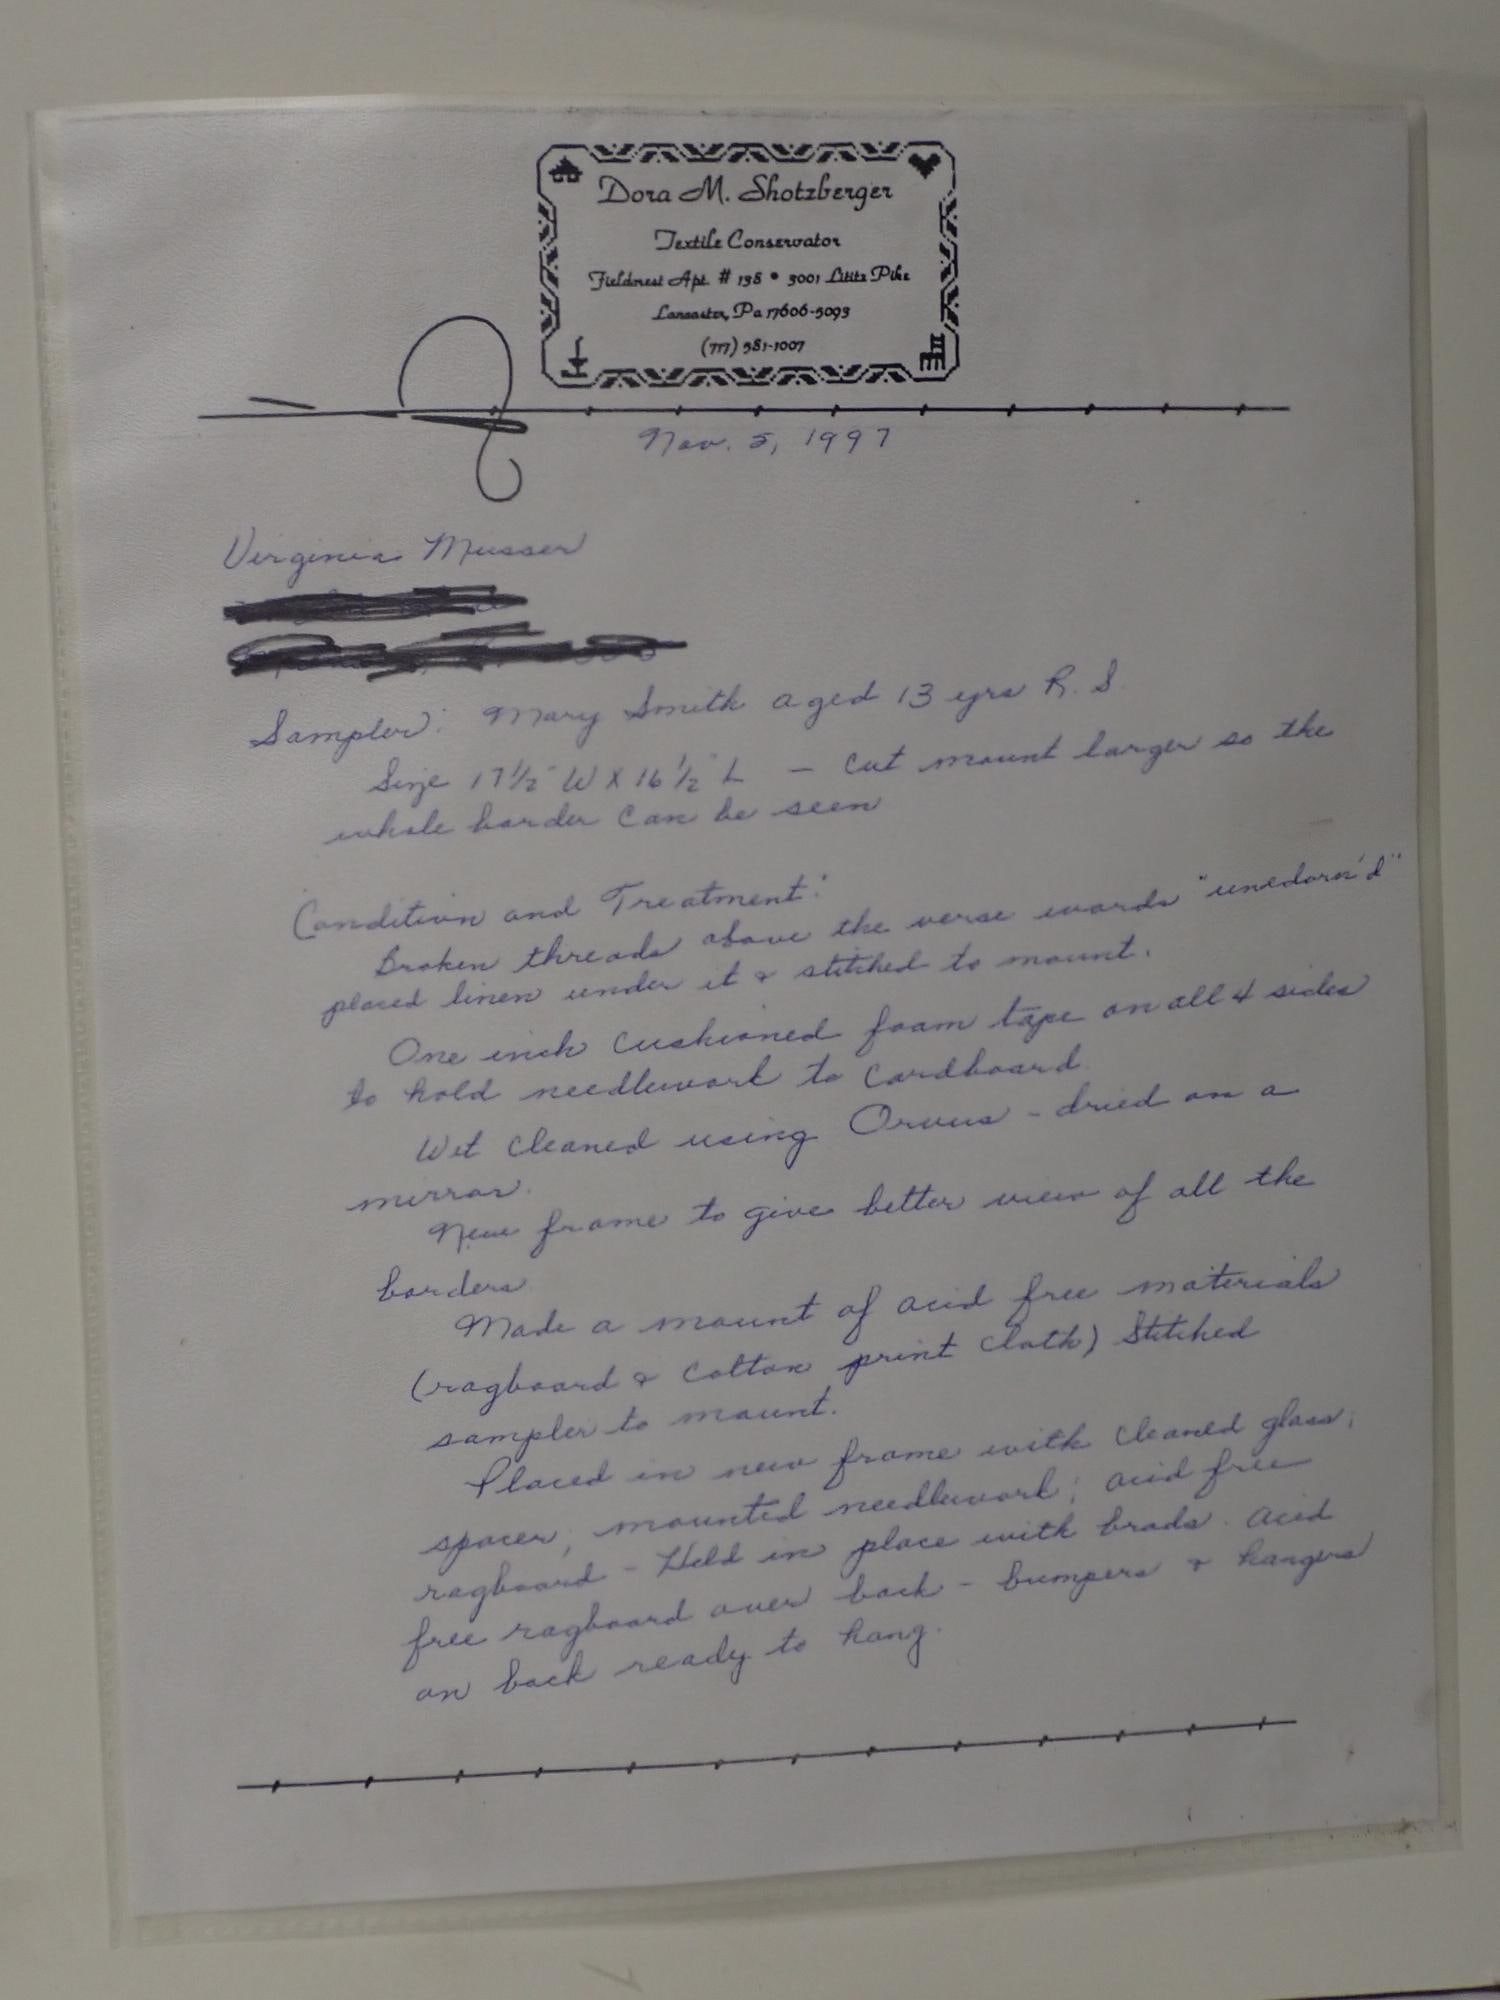 Dora M. Shotzberger
Textile Conservator
Fieldcrest Apt. # 138 • 3001 Lititz Pike
Lancaster, Pa 17606-5093
(717) 581-1007
Nov. 5, 1997
Virginia Musser
Sampler: Mary Smith aged 13 yrs R. S.
Size 17 1/2" W X 16 1/2" L - Cut mount larger so the
whole border can be seen
Condition and Treatment:
Broken threads above the verse words "unedorn'd"
placed linen under it & stitched to mount.
One inch cushioned foam tape on all 4 sides
to hold needlework to cardboard.
Wet cleaned using Orvus - dried on a
mirror.
New frame to give better view of all the
borders
Made a mount of acid free materials
(ragboard & cotton print cloth) Stitched
sampler to mount.
Placed in new frame with cleaned glass;
spacer; mounted needlework; acid free
ragboard - Held in place with brads. Acid
free ragboard over back - bumpers & hangers
on back ready to hang.